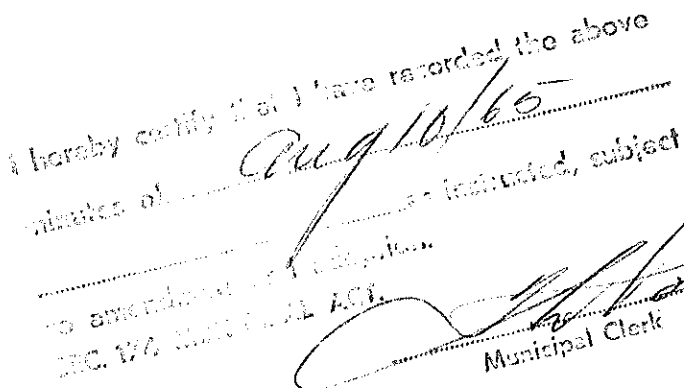 I hereby certify that I have recorded the above
minutes of Aug 10/65
as instructed, subject
to amendment and adoption.
SEC. MUNICIPAL ACT.
Municipal Clerk